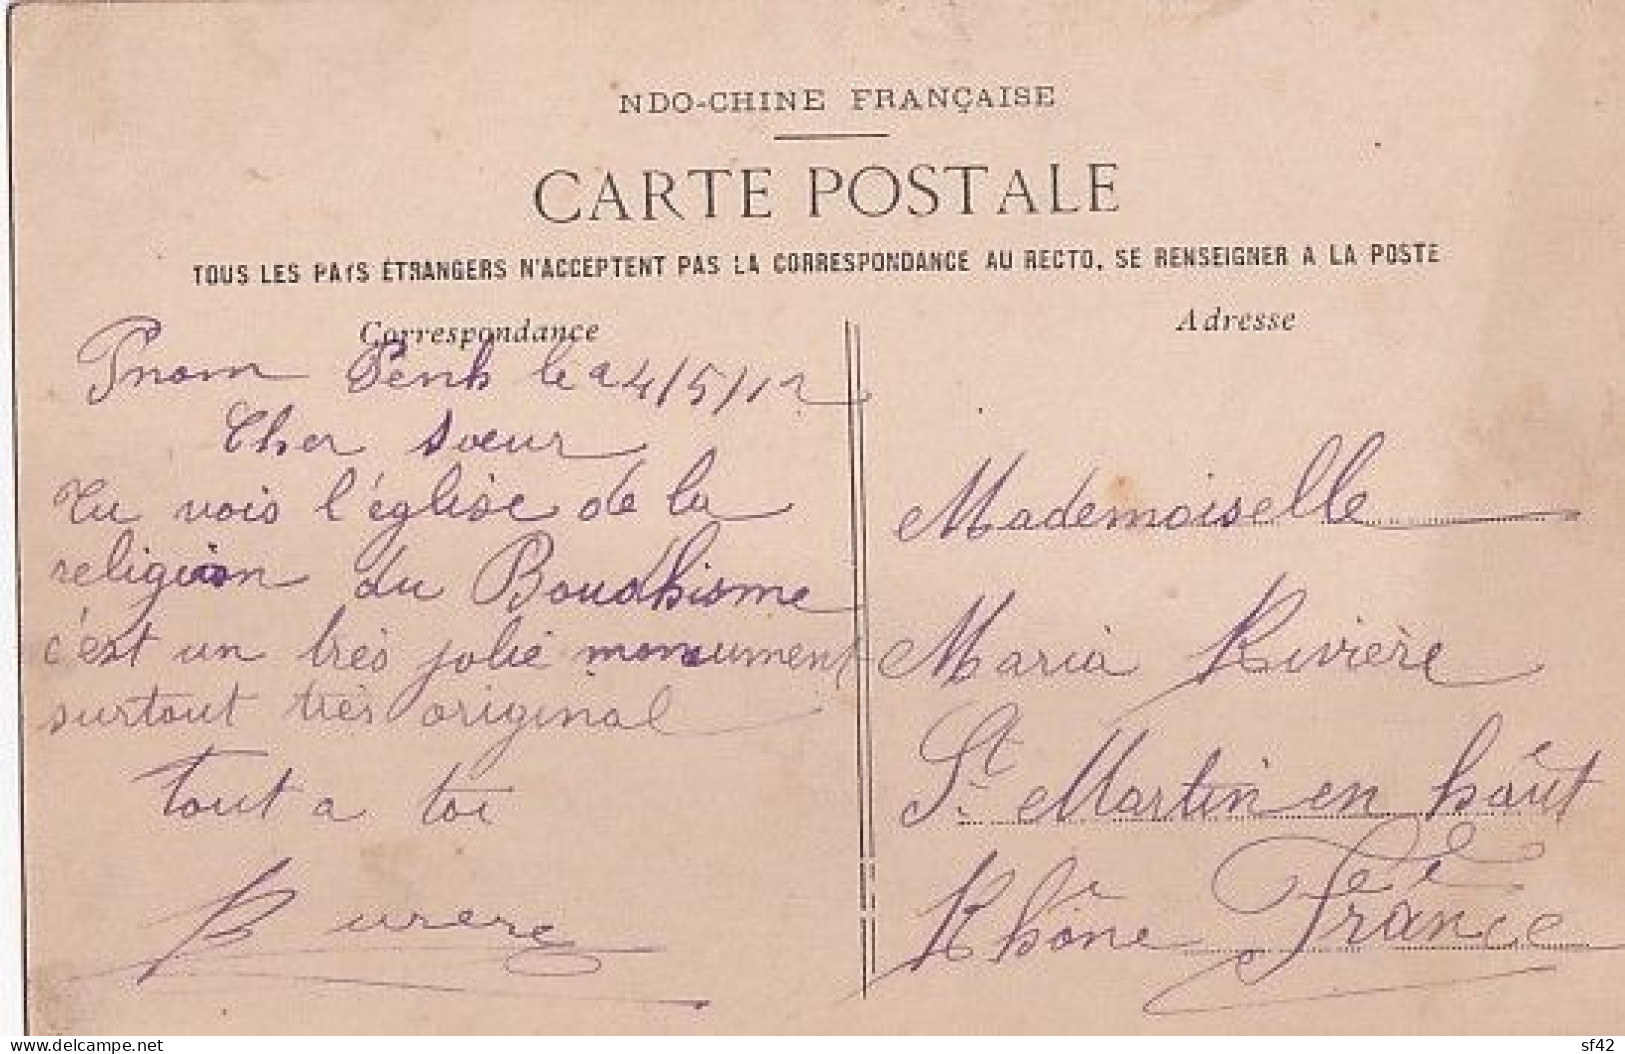 NDO-CHINE FRANÇAISE
CARTE POSTALE
TOUS LES PAYS ÉTRANGERS N'ACCEPTENT PAS LA CORRESPONDANCE AU RECTO, SE RENSEIGNER A LA POSTE
Correspondance
Pnom Penh le 24/5/12
Cher sœur
Tu vois l'église de la
religion du Boudhisme
c'est un très jolie monument
surtout très original
tout a toi
Adresse
Mademoiselle
Maria Rivière
St Martin en haut
Rhône France
delcampe.net
sf42